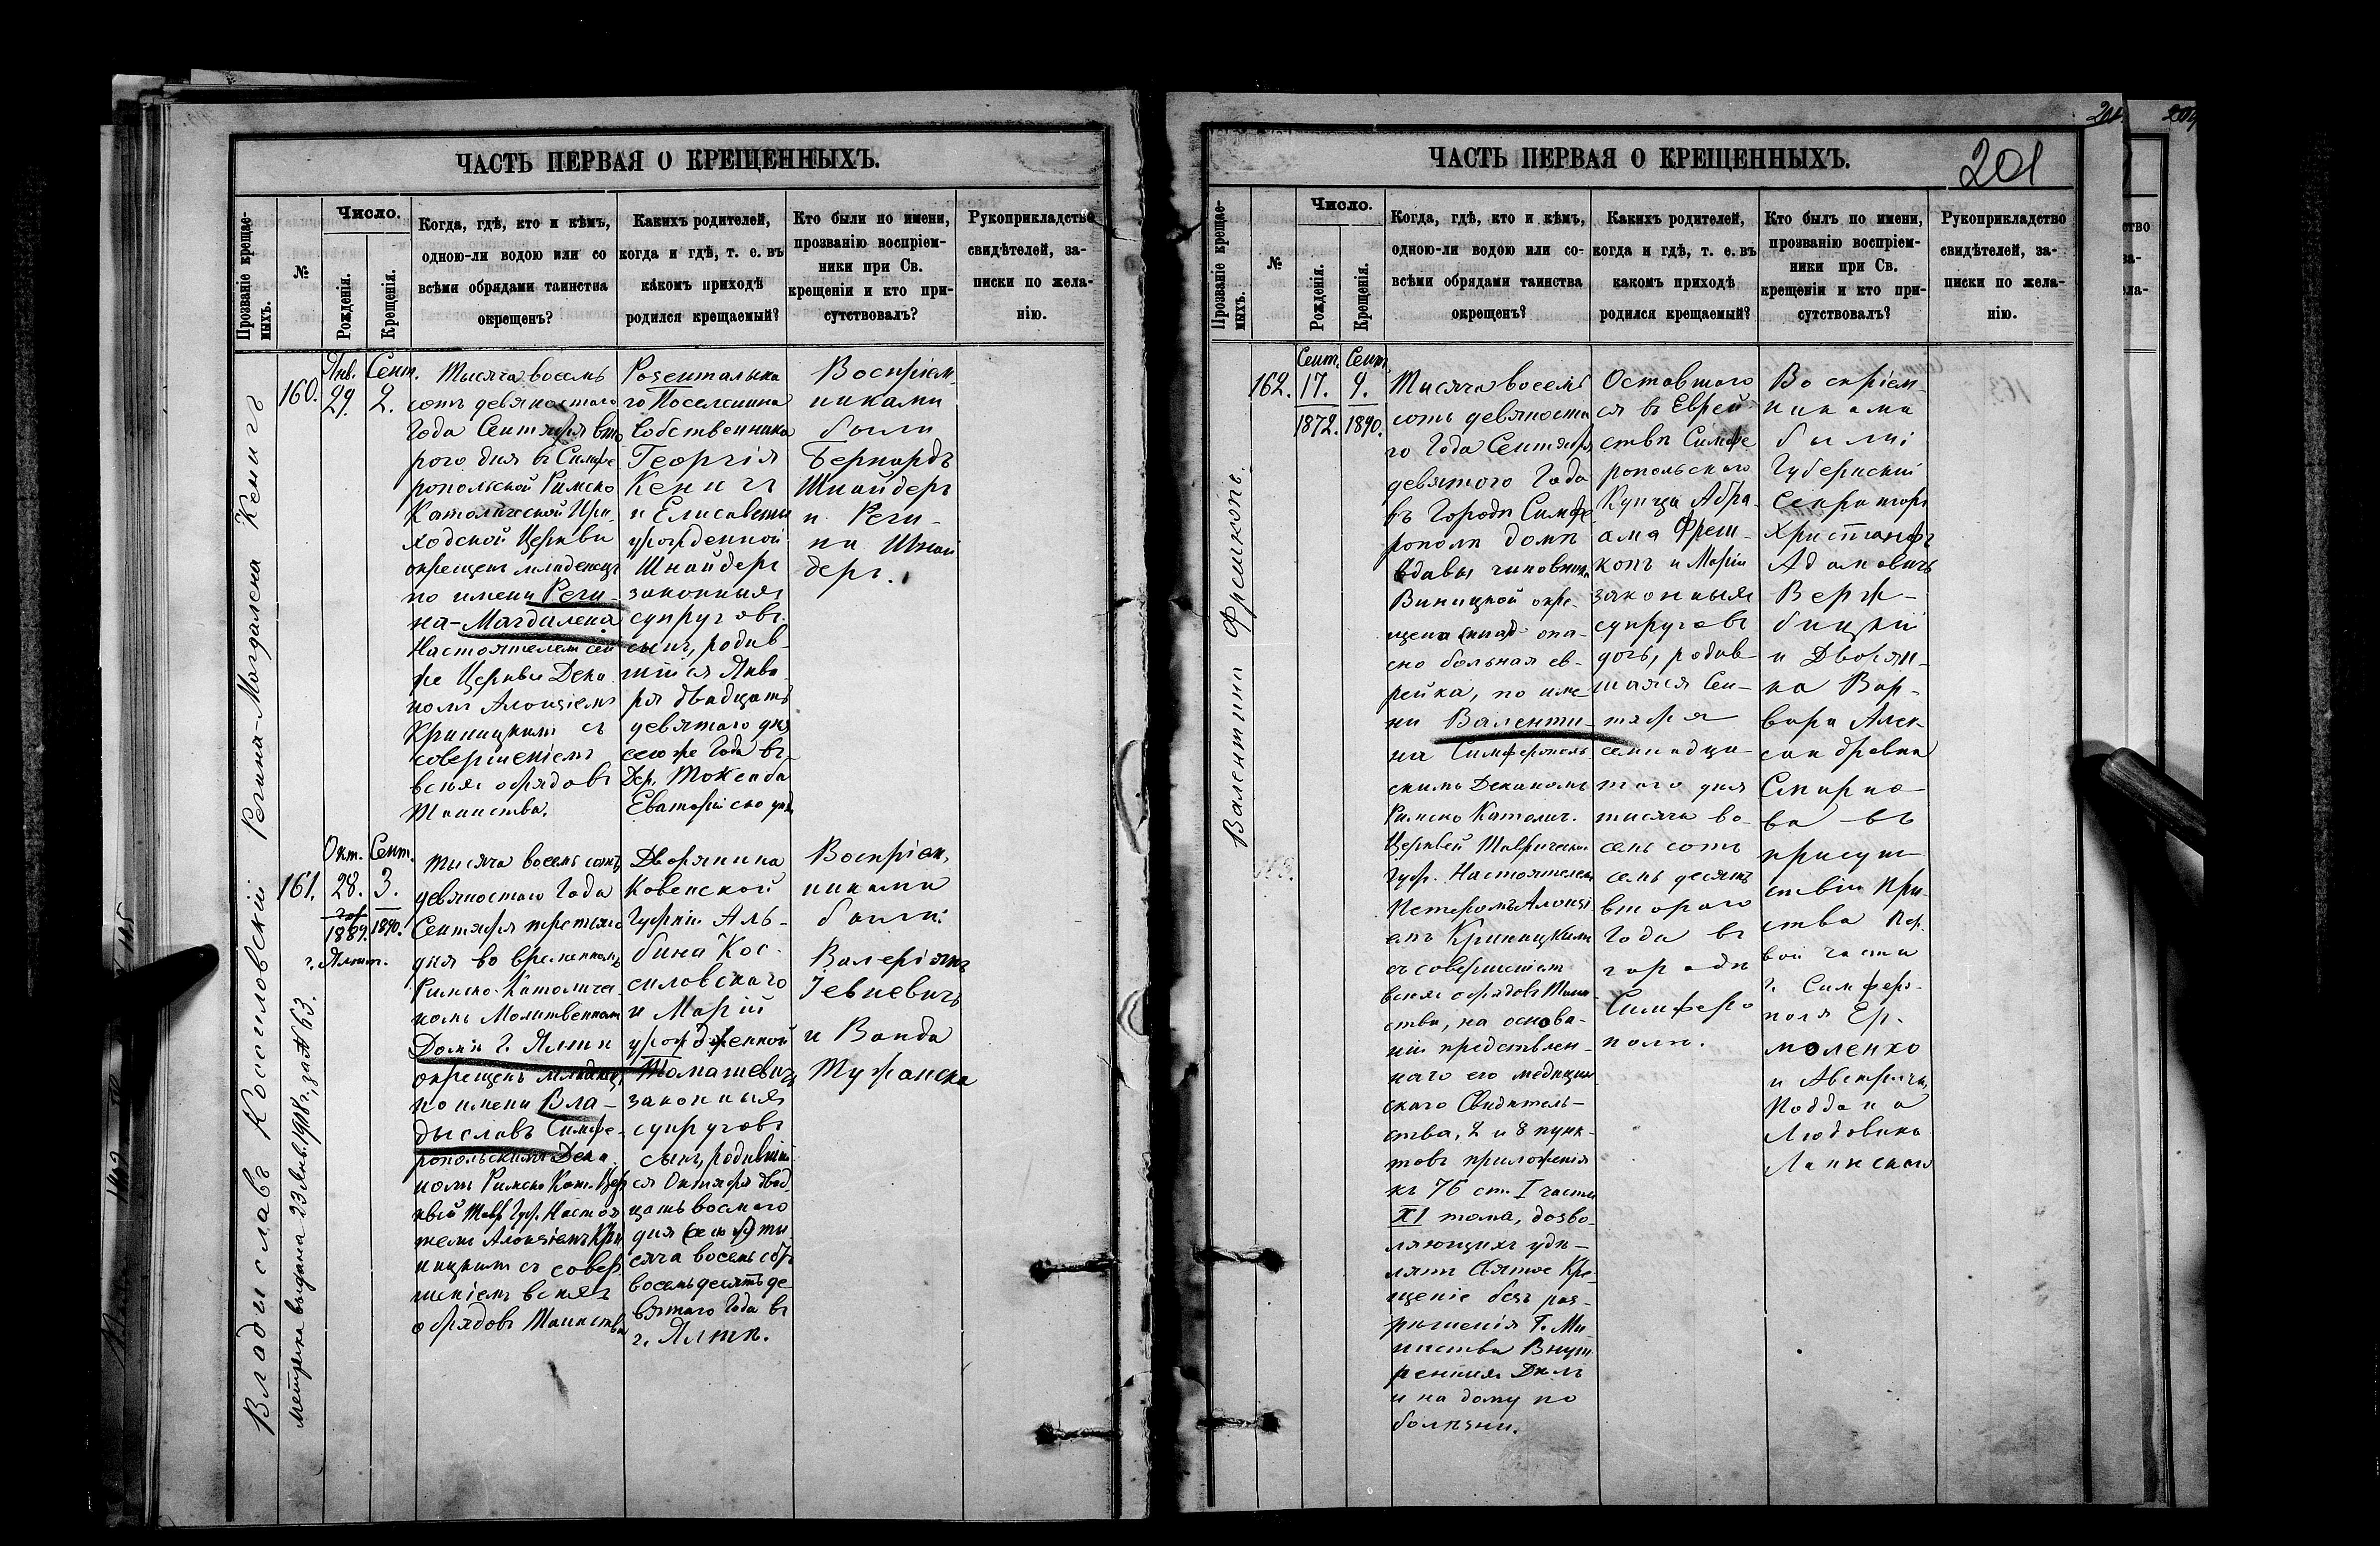 ЧАСТЬ ПЕРВАЯ О КРЕЩЕННЫХЪ.
Прозваніе крещае-
мыхъ.
№
Число.
Рожденія.
Крещенія.
Когда, гдѣ, кто и кѣмъ,
одною-ли водою или со
всѣми обрядами таинства
окрещенъ?
Какихъ родителей,
когда и гдѣ, т. е. въ
какомъ приходѣ
родился крещаемый?
Кто были по имени,
прозванію воспріем-
ники при Св.
крещеніи и кто при-
сутствовалъ?
Рукоприкладство
свидѣтелей, за-
писки по жела-
нію.
Регина-Магдалена Кенигъ
160.
Янв.
29.
Сент.
2.
Тысяча восемь
сотъ девяностаго
Года Сентября вто
рого дня въ Симфе
ропольской Римско
Католической При
ходской Церкви
окрещенъ младенецъ
по имени Реги-
на-Магдалена
Настоятелемъ сей
же Церкви Дека
номъ Алоизіемъ
Криницкимъ съ
совершеніемъ
всѣхъ обрядовъ
Таинства.
Розентальска
го Поселенина
Собственника
Георгія
Кенигъ
и Елисаветы
урожденной
Шнайдеръ
законныхъ
супруговъ
сынъ, родив-
шійся Янва
ря двадцать
девятаго дня
сего же Года въ
Дер. Токенба
Евпаторійско уѣз
Воспріем-
никами
были
Бернардъ
Шнайдеръ
и Реги-
на Шнай
деръ.
Владиславъ Коссиловскій
метрика выдана 23 Янв. 1918 г., за № 63.
161.
Окт.
28.
1889.
г. Ялта.
Сент.
3.
1890.
Тысяча восемь сотъ
девяностаго Года
Сентября третьяго
дня во временномъ
Римско-Католичес
комъ Молитвенномъ
Домѣ г. Ялты
окрещенъ младенецъ
по имени Вла-
дыславъ Симфе-
ропольскимъ Дека
номъ Римско Кат. Цер
квей Тавр. Губ. Настоя
телемъ Алоизіемъ Кри
ницкимъ съ совер
шеніемъ всѣхъ
обрядовъ Таинства
Дворянина
Ковенской
Губерніи Аль-
бина Кос-
силовскаго
и Маріи
урожденной
Томашевичъ
законныхъ
супруговъ
сынъ, родившій
ся Октября двад
цать восьмого
дня ты
сяча восемь сотъ
восемьдесятъ де
вятаго Года въ
г. Ялтѣ.
Воспріем,
никами
были:
Валеріянъ
Іевневичъ
и Ванда
ЧАСТЬ ПЕРВАЯ О КРЕЩЕННЫХЪ.
201
Прозваніе крещае-
мыхъ.
№
Число.
Рожденія.
Крещенія.
Когда, гдѣ, кто и кѣмъ,
одною-ли водою или со-
всѣми обрядами таинства
окрещенъ?
Какихъ родителей,
когда и гдѣ, т. е. въ
какомъ приходѣ
родился крещаемый?
Кто былъ по имени,
прозванію воспріем-
ники при Св.
крещеніи и кто при-
сутствовалъ?
Рукоприкладство
свидѣтелей, за-
писки по жела-
нію.
Валентина Фрешкопъ.
162.
Сент.
17.
1872.
Сент.
9.
1890.
Тысяча восемь
сотъ девяноста
го Года Сентября
девятого Года
въ Городѣ Симфе
рополѣ домѣ
вдовы чиновника
Виницкой окре-
щена опа-
сно больная ев-
рейка, по име-
ни Валенти-
на Симферополь
скимъ Деканомъ
Римско Католич.
Церквей Таврической
Губ. Настоятелемъ
Алоизі
емъ Криницкимъ
съ совершеніемъ
всѣхъ обрядовъ Таин
ства, на основа-
ніи представлен-
наго его медицин
скаго Свидѣтель-
ства, 2 и 8 пунк-
товъ приложенія
къ 76 ст. I части
XI тома, дозво-
ляющихъ удѣ-
лять Святое Кре-
щеніе безъ раз-
рѣшенія Г. Ми-
нистра Внут-
реннихъ Дѣлъ
и на дому по
болѣзни.
Оставшаго
ся въ Еврей
ствѣ Симфе
ропольскаго
Купца Абра-
ама Фреш-
копъ и Маріи
законныхъ
супруговъ
дочь, родив-
шаяся Сен-
тября
семнадца-
таго дня
тысяча во-
семь сотъ
семьдесятъ
второго
Года въ
городѣ
Симферо
полѣ.
Воспріем-
никами
были:
Губернскій
Секретарь
Христіанъ
Адамовичъ
Верж-
бицкій
и Дворян-
ка Вар-
вара Алек-
сандровна
Смирно-
ва въ
присут-
ствіи При-
става Пер
вой части
г. Симферо-
поля Ер-
моленко
и Австрійск.
Поддана
Людовика